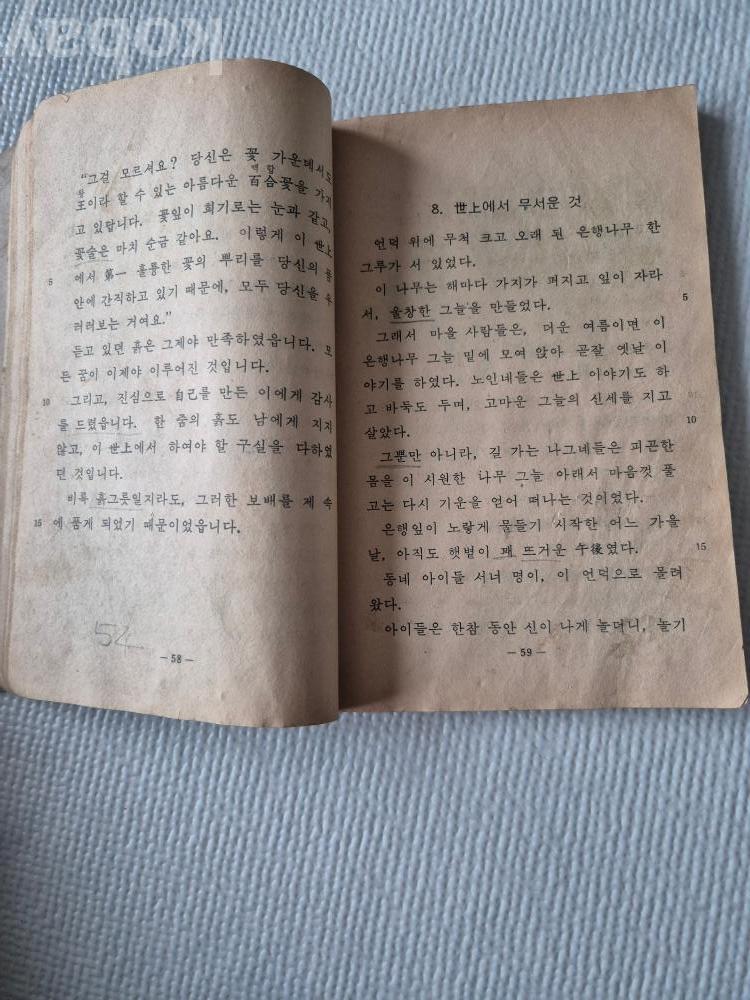 kobay
"그걸 모르셔요? 당신은 꽃 가운데서도
왕 백합
王이라 할 수 있는 아름다운 百合꽃을 가지
고 있답니다. 꽃잎이 희기로는 눈과 같고,
꽃술은 마치 순금 같아요. 이렇게 이 世上
5 에서 第一 훌륭한 꽃의 뿌리를 당신의 품
안에 간직하고 있기 때문에, 모두 당신을 우
러러보는 거여요."
듣고 있던 흙은 그제야 만족하였읍니다. 모
든 꿈이 이제야 이루어진 것입니다.
10 그리고, 진심으로 自己를 만든 이에게 감사
를 드렸읍니다. 한 줌의 흙도 남에게 지지
않고, 이 世上에서 하여야 할 구실을 다하였
던 것입니다.
비록 흙그릇일지라도, 그러한 보배를 제 속
15 에 품게 되었기 때문이었읍니다.
52
— 58 —
8. 世上에서 무서운 것
언덕 위에 무척 크고 오래 된 은행나무 한
그루가 서 있었다.
이 나무는 해마다 가지가 퍼지고 잎이 자라
서, 울창한 그늘을 만들었다. 5
그래서 마을 사람들은, 더운 여름이면 이
은행나무 그늘 밑에 모여 앉아 곧잘 옛날 이
야기를 하였다. 노인네들은 世上 이야기도 하
고 바둑도 두며, 고마운 그늘의 신세를 지고
살았다. 10
그뿐만 아니라, 길 가는 나그네들은 피곤한
몸을 이 시원한 나무 그늘 아래서 마음껏 풀
고는 다시 기운을 얻어 떠나는 것이었다.
은행잎이 노랗게 물들기 시작한 어느 가을
날, 아직도 햇볕이 꽤 뜨거운 午後였다. 15
동네 아이들 서너 명이, 이 언덕으로 몰려
왔다.
아이들은 한참 동안 신이 나게 놀더니, 놀기
— 59 —